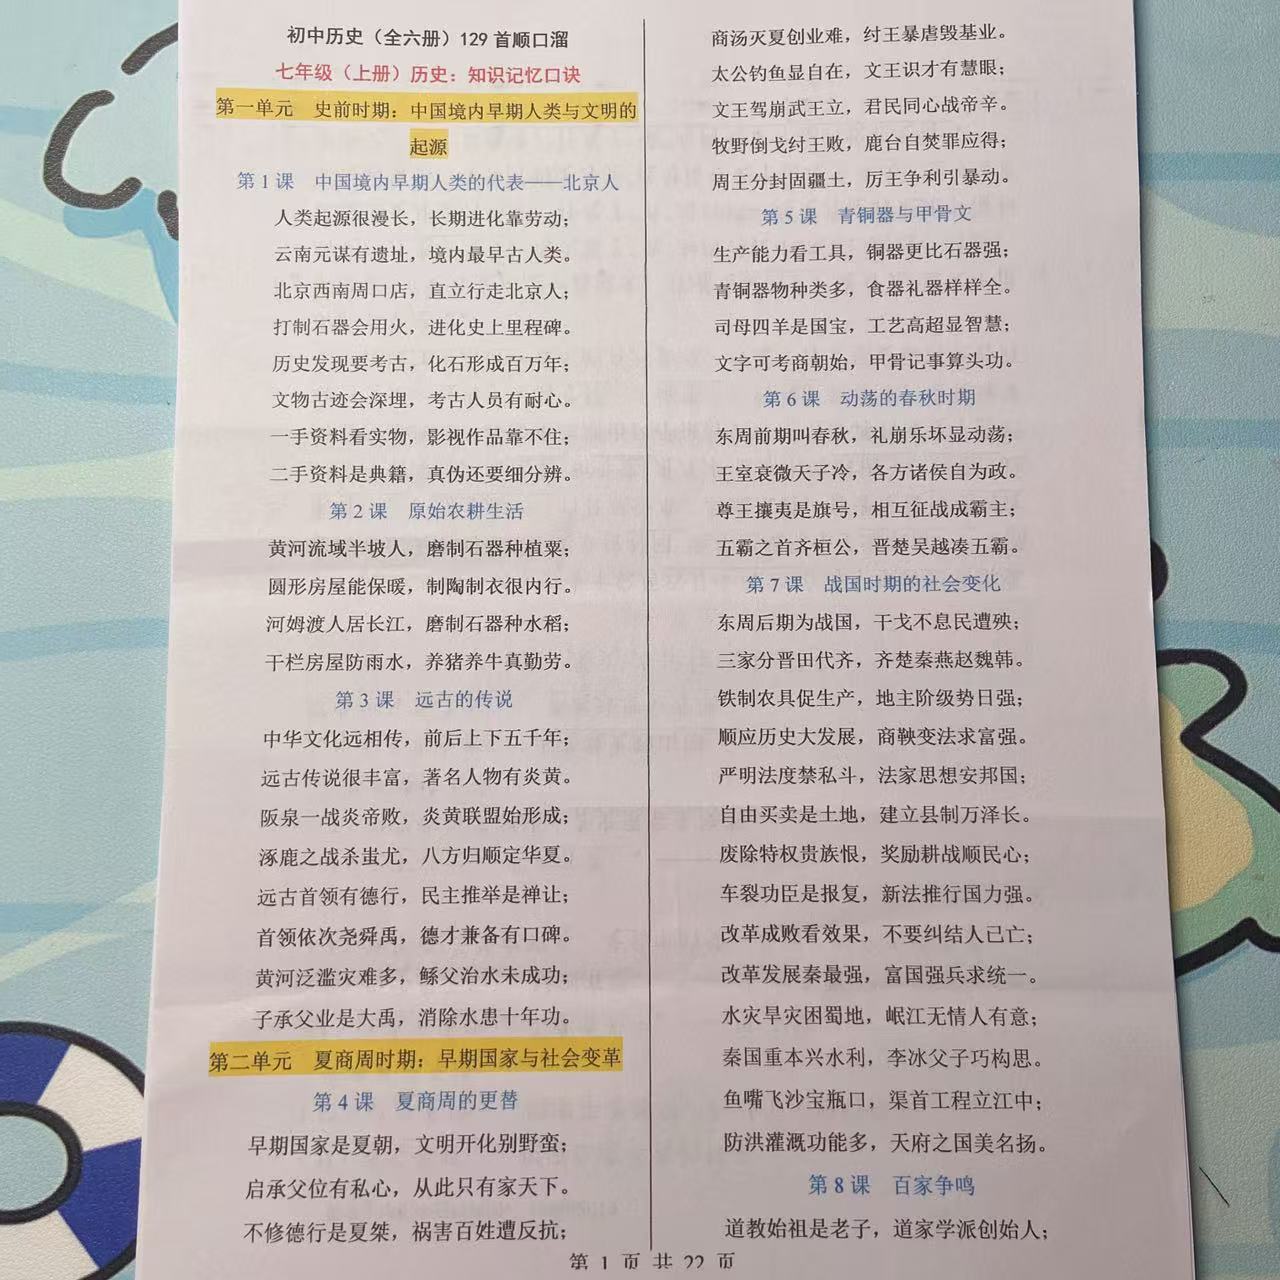 初中历史（全六册）129 首顺口溜
七年级（上册）历史：知识记忆口诀
第一单元 史前时期：中国境内早期人类与文明的
起源
第 1 课 中国境内早期人类的代表——北京人
人类起源很漫长，长期进化靠劳动；
云南元谋有遗址，境内最早古人类。
北京西南周口店，直立行走北京人；
打制石器会用火，进化史上里程碑。
历史发现要考古，化石形成百万年；
文物古迹会深埋，考古人员有耐心。
一手资料看实物，影视作品靠不住；
二手资料是典籍，真伪还要细分辨。
第 2 课 原始农耕生活
黄河流域半坡人，磨制石器种植粟；
圆形房屋能保暖，制陶制衣很内行。
河姆渡人居长江，磨制石器种水稻；
干栏房屋防雨水，养猪养牛真勤劳。
第 3 课 远古的传说
中华文化远相传，前后上下五千年；
远古传说很丰富，著名人物有炎黄。
阪泉一战炎帝败，炎黄联盟始形成；
涿鹿之战杀蚩尤，八方归顺定华夏。
远古首领有德行，民主推举是禅让；
首领依次尧舜禹，德才兼备有口碑。
黄河泛滥灾难多，鲧父治水未成功；
子承父业是大禹，消除水患十年功。
第二单元 夏商周时期：早期国家与社会变革
第 4 课 夏商周的更替
早期国家是夏朝，文明开化别野蛮；
启承父位有私心，从此只有家天下。
不修德行是夏桀，祸害百姓遭反抗；
商汤灭夏创业难，纣王暴虐毁基业。
太公钓鱼显自在，文王识才有慧眼；
文王驾崩武王立，君民同心战帝辛。
牧野倒戈纣王败，鹿台自焚罪应得；
周王分封固疆土，厉王争利引暴动。
第 5 课 青铜器与甲骨文
生产能力看工具，铜器更比石器强；
青铜器物种类多，食器礼器样样全。
司母四羊是国宝，工艺高超显智慧；
文字可考商朝始，甲骨记事算头功。
第 6 课 动荡的春秋时期
东周前期叫春秋，礼崩乐坏显动荡；
王室衰微天子冷，各方诸侯自为政。
尊王攘夷是旗号，相互征战成霸主；
五霸之首齐桓公，晋楚吴越凑五霸。
第 7 课 战国时期的社会变化
东周后期为战国，干戈不息民遭殃；
三家分晋田代齐，齐楚秦燕赵魏韩。
铁制农具促生产，地主阶级势日强；
顺应历史大发展，商鞅变法求富强。
严明法度禁私斗，法家思想安邦国；
自由买卖是土地，建立县制万泽长。
废除特权贵族恨，奖励耕战顺民心；
车裂功臣是报复，新法推行国力强。
改革成败看效果，不要纠结人已亡；
改革发展秦最强，富国强兵求统一。
水灾旱灾困蜀地，岷江无情人有意；
秦国重本兴水利，李冰父子巧构思。
鱼嘴飞沙宝瓶口，渠首工程立江中；
防洪灌溉功能多，天府之国美名扬。
第 8 课 百家争鸣
道教始祖是老子，道家学派创始人；
第 1 页 共 22 页